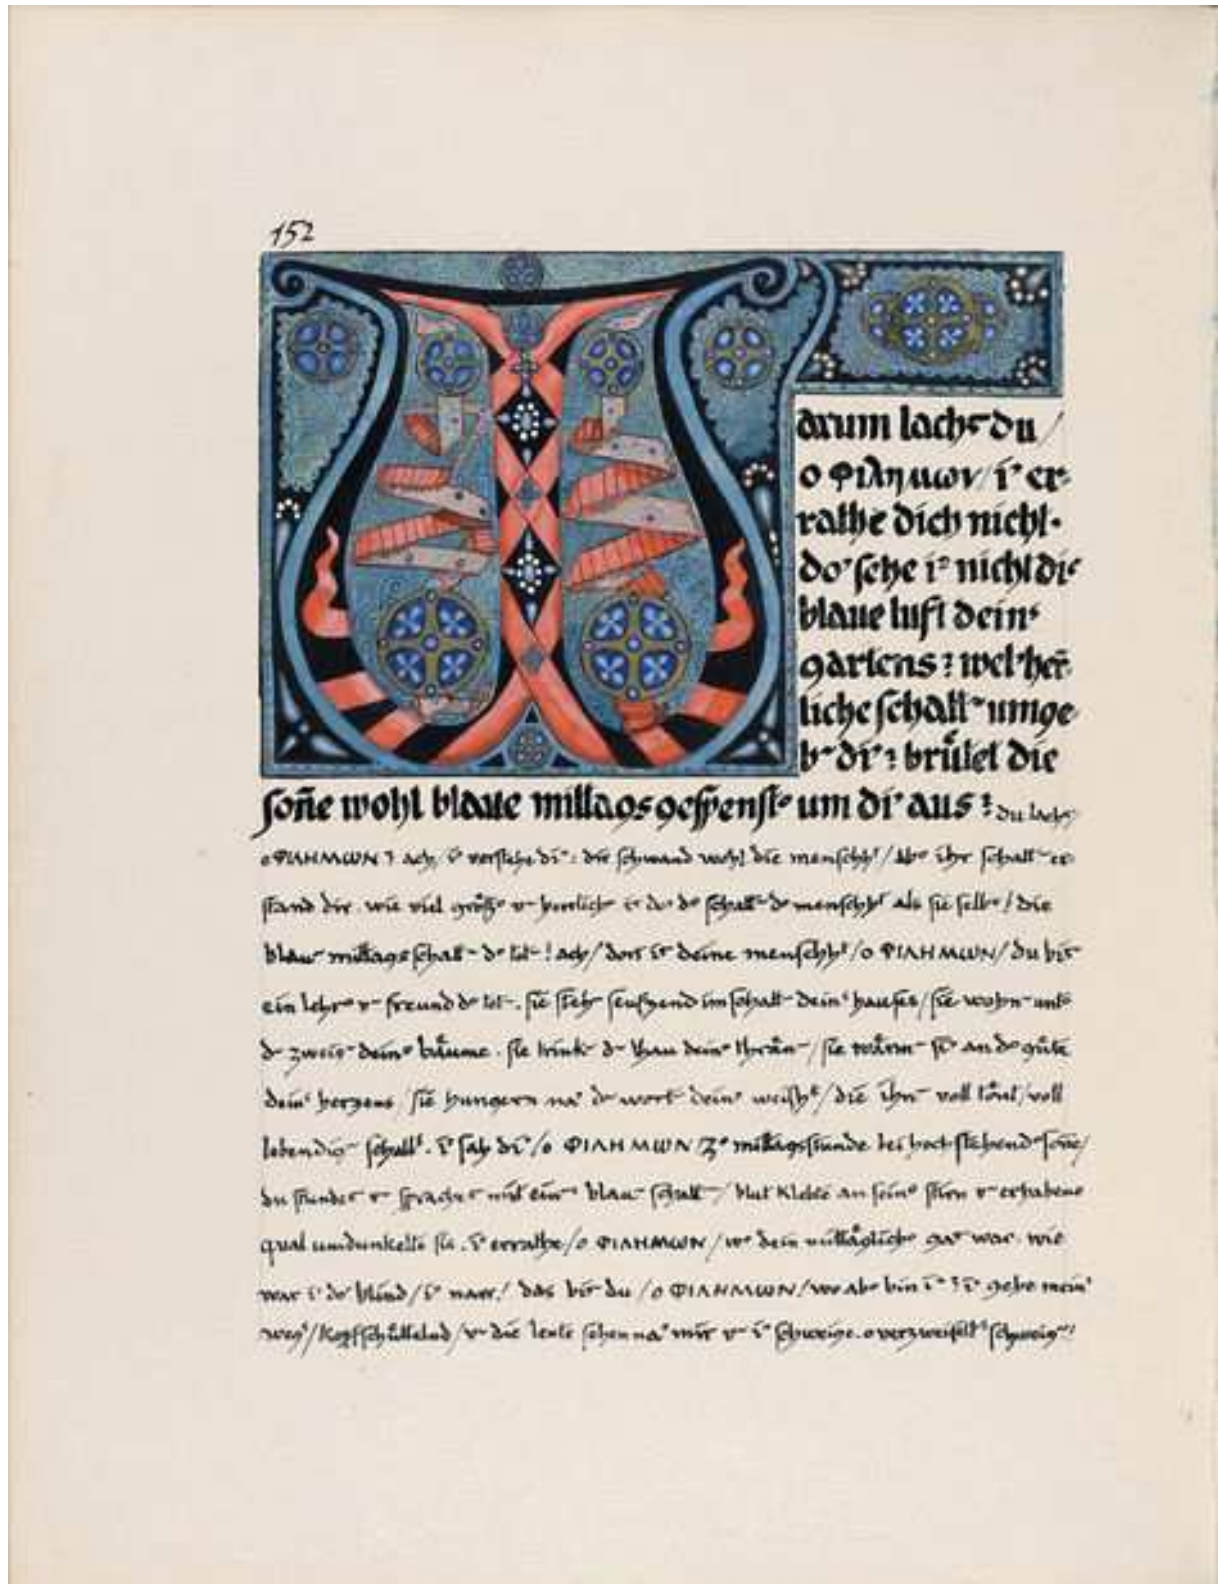 152
Warum lachst du /
o Φιλημων / i' er-
rathe dich nicht.
do' sehe i' nicht die
blaue luft dein's
gartens? welch' herr-
liche schatt- umge
b- di'? brütet die
soñe wohl blaue mittagsgespenst' um di' aus? du lachst
o ΦΙΛΗΜΩΝ? ach / i' verstehe di': die schwand wohl die menschh't / ab' ihr schatt- er-
stand dir. wie viel größ' u- herrlich' i' d' schatt- d' menschh't als sie selb' / die
blau- mittagsschatt- d' tot-! ach / dort ist deine menschh't / o ΦΙΛΗΜΩΝ / du bist
ein lehr' u- freund d' tot-. sie steh- seufzend im schatt- dein's hauses / sie wohn- unt'
d- zweig- dein' bäume. sie trink- d- thau dein' thrän- / sie wärm- si' an d' güte
dein's herzens / sie hungern na' d- wort- dein' weish't / die ihn- voll tönt / voll
lebendig- schall's. i' sah di' / o ΦΙΛΗΜΩΝ / z' mittagsstunde bei hoch stehend' soñe /
du standest u- sprachst mit ein- blau- schatt- / blut klebte an sein' stirn u- erhabene
qual umdunkelte sie. i' errathe / o ΦΙΛΗΜΩΝ / w' dein mittäglich' gast war. wie
war i' do' blind / i' narr! das bist du / o ΦΙΛΗΜΩΝ / wo ab' bin i'? i' gehe mein'
weg' / kopfschüttelnd / u- die leute sehen na' mir u- i' schweige. o verzweifelt' schweig-!